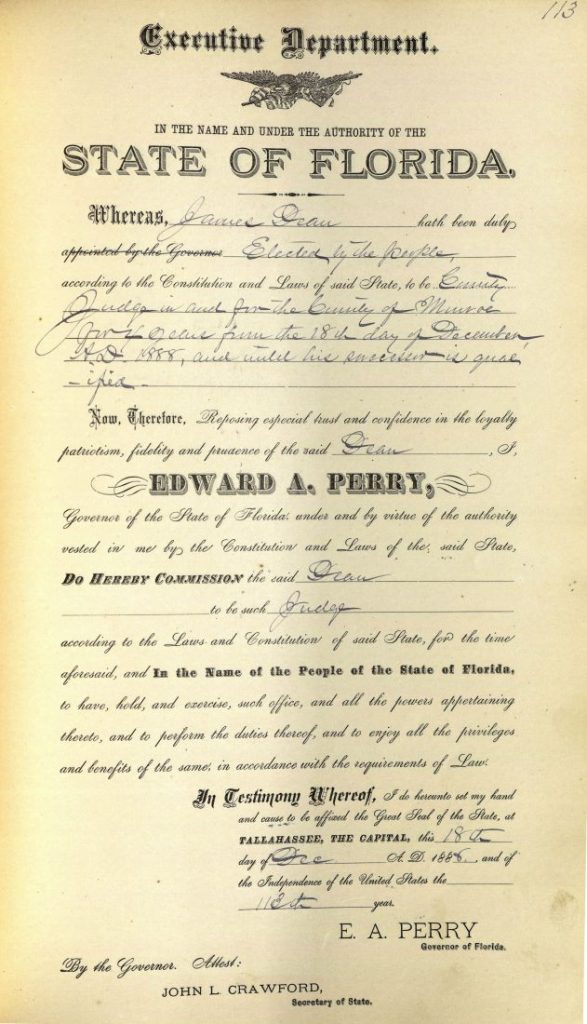 113
Executive Department.
IN THE NAME AND UNDER THE AUTHORITY OF THE
STATE OF FLORIDA.
Whereas, James Dean hath been duly
appointed by the Governor Elected by the people,
according to the Constitution and Laws of said State, to be County
Judge in and for the County of Monroe
for 4 years from the 18th day of December
A.D. 1888, and until his successor is qual
-ified-
Now, Therefore, Reposing especial trust and confidence in the loyalty
patriotism, fidelity and prudence of the said Dean, I,
EDWARD A. PERRY,
Governor of the State of Florida, under and by virtue of the authority
vested in me by the Constitution and Laws of the said State,
DO HEREBY COMMISSION the said Dean
to be such Judge
according to the Laws and Constitution of said State, for the time
aforesaid, and In the Name of the People of the State of Florida,
to have, hold, and exercise, such office, and all the powers appertaining
thereto, and to perform the duties thereof, and to enjoy all the privileges
and benefits of the same, in accordance with the requirements of Law.
In Testimony Whereof, I do hereunto set my hand
and cause to be affixed the Great Seal of the State, at
TALLAHASSEE, THE CAPITAL, this 18th
day of Dec A. D. 1888, and of
the Independence of the United States the
113th year.
E. A. PERRY
Governor of Florida.
By the Governor. Attest:
JOHN L. CRAWFORD,
Secretary of State.